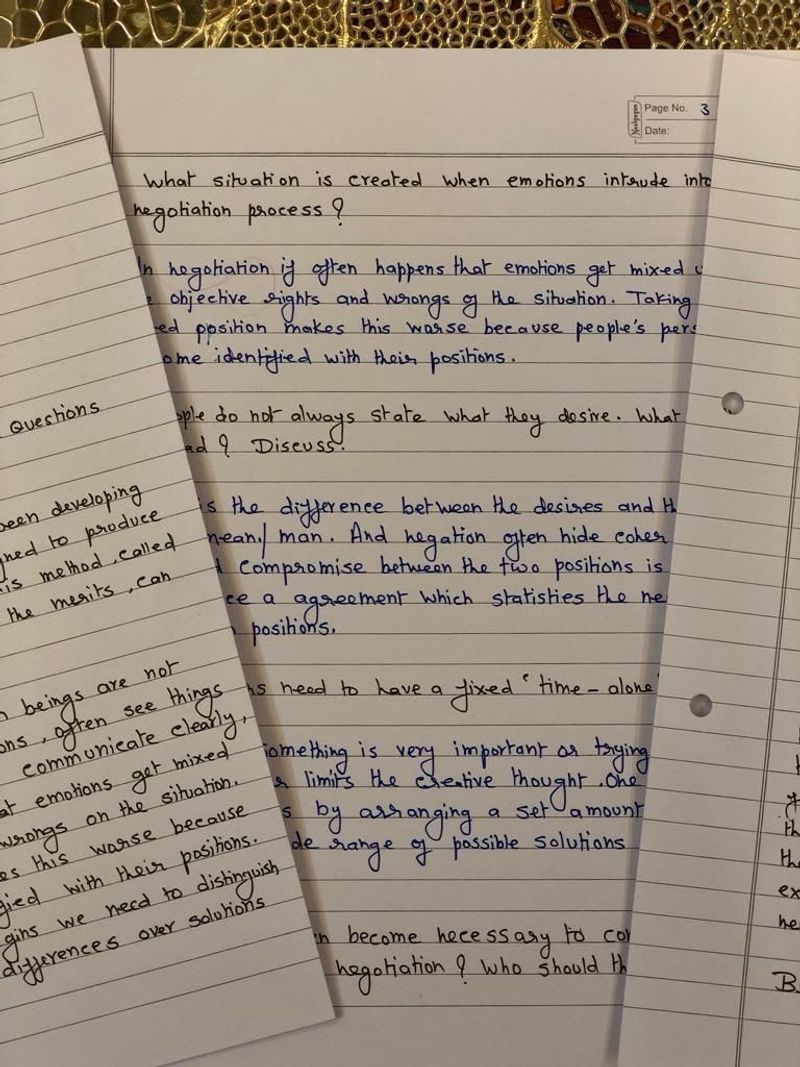 Neelgagan
Page No. 3
Date:
What situation is created when emotions intrude into
negotiation process ?
In negotiation if often happens that emotions get mixed
objective rights and wrongs of the situation. Taking
position makes this worse because people's
identified with their positions.
do not always state what they desire. What
? Discuss.
is the difference between the desires and
mean./ man. And negation often hide
compromise between the two positions is
a agreement which statisties the
positions.
need to have a fixed ' time - alone '
something is very important or trying
limits the creative thought . One
by arranging a set amount
range of possible solutions
become necessary to
negotiation ? Who should
Questions
been developing
to produce
method , called
the merits , can
beings are not
, often see things
communicate clearly,
emotions get mixed
wrongs on the situation.
this worse because
with their positions.
we need to distinguish
differences over solutions
B.